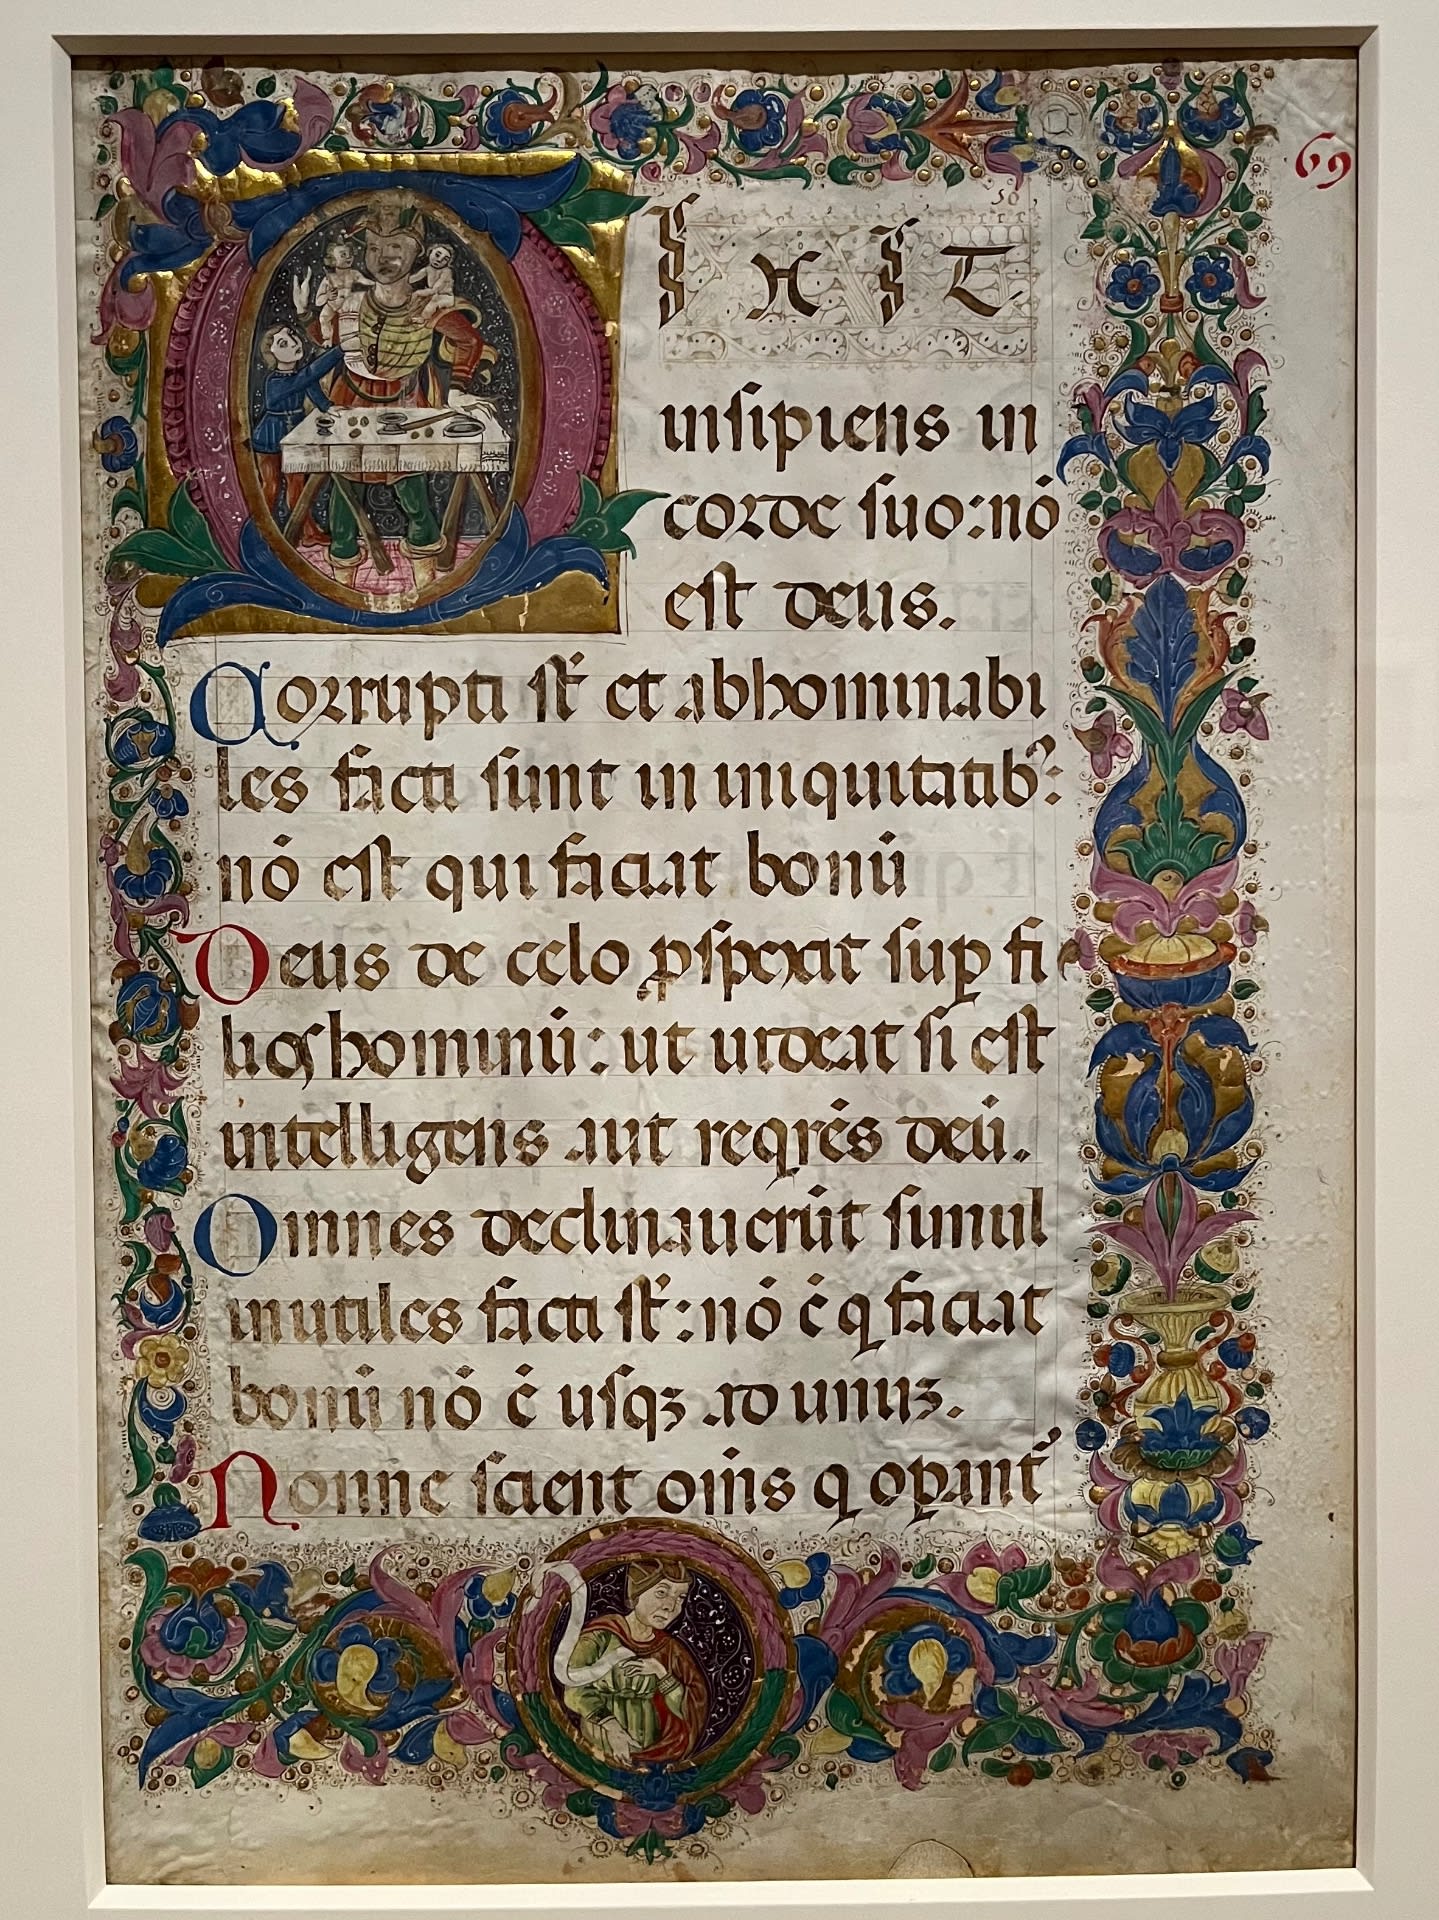 69
DIXIT
insipiens in
corde suo: nō
est deus.
Corrupti st̄ et abhominabi
les facti sunt in iniquitatib⁊:
nō est qui faciat bonū
Deus de celo ꝓspexit suꝑ fi
lios hominū: ut uideat si est
intelligens aut reqrēs deū.
Omnes declinauerūt simul
inutiles facti st̄: nō ē q faciat
bonū nō ē usqꝫ ad unuꝫ.
Nonne scient oīns q oꝑant᷑